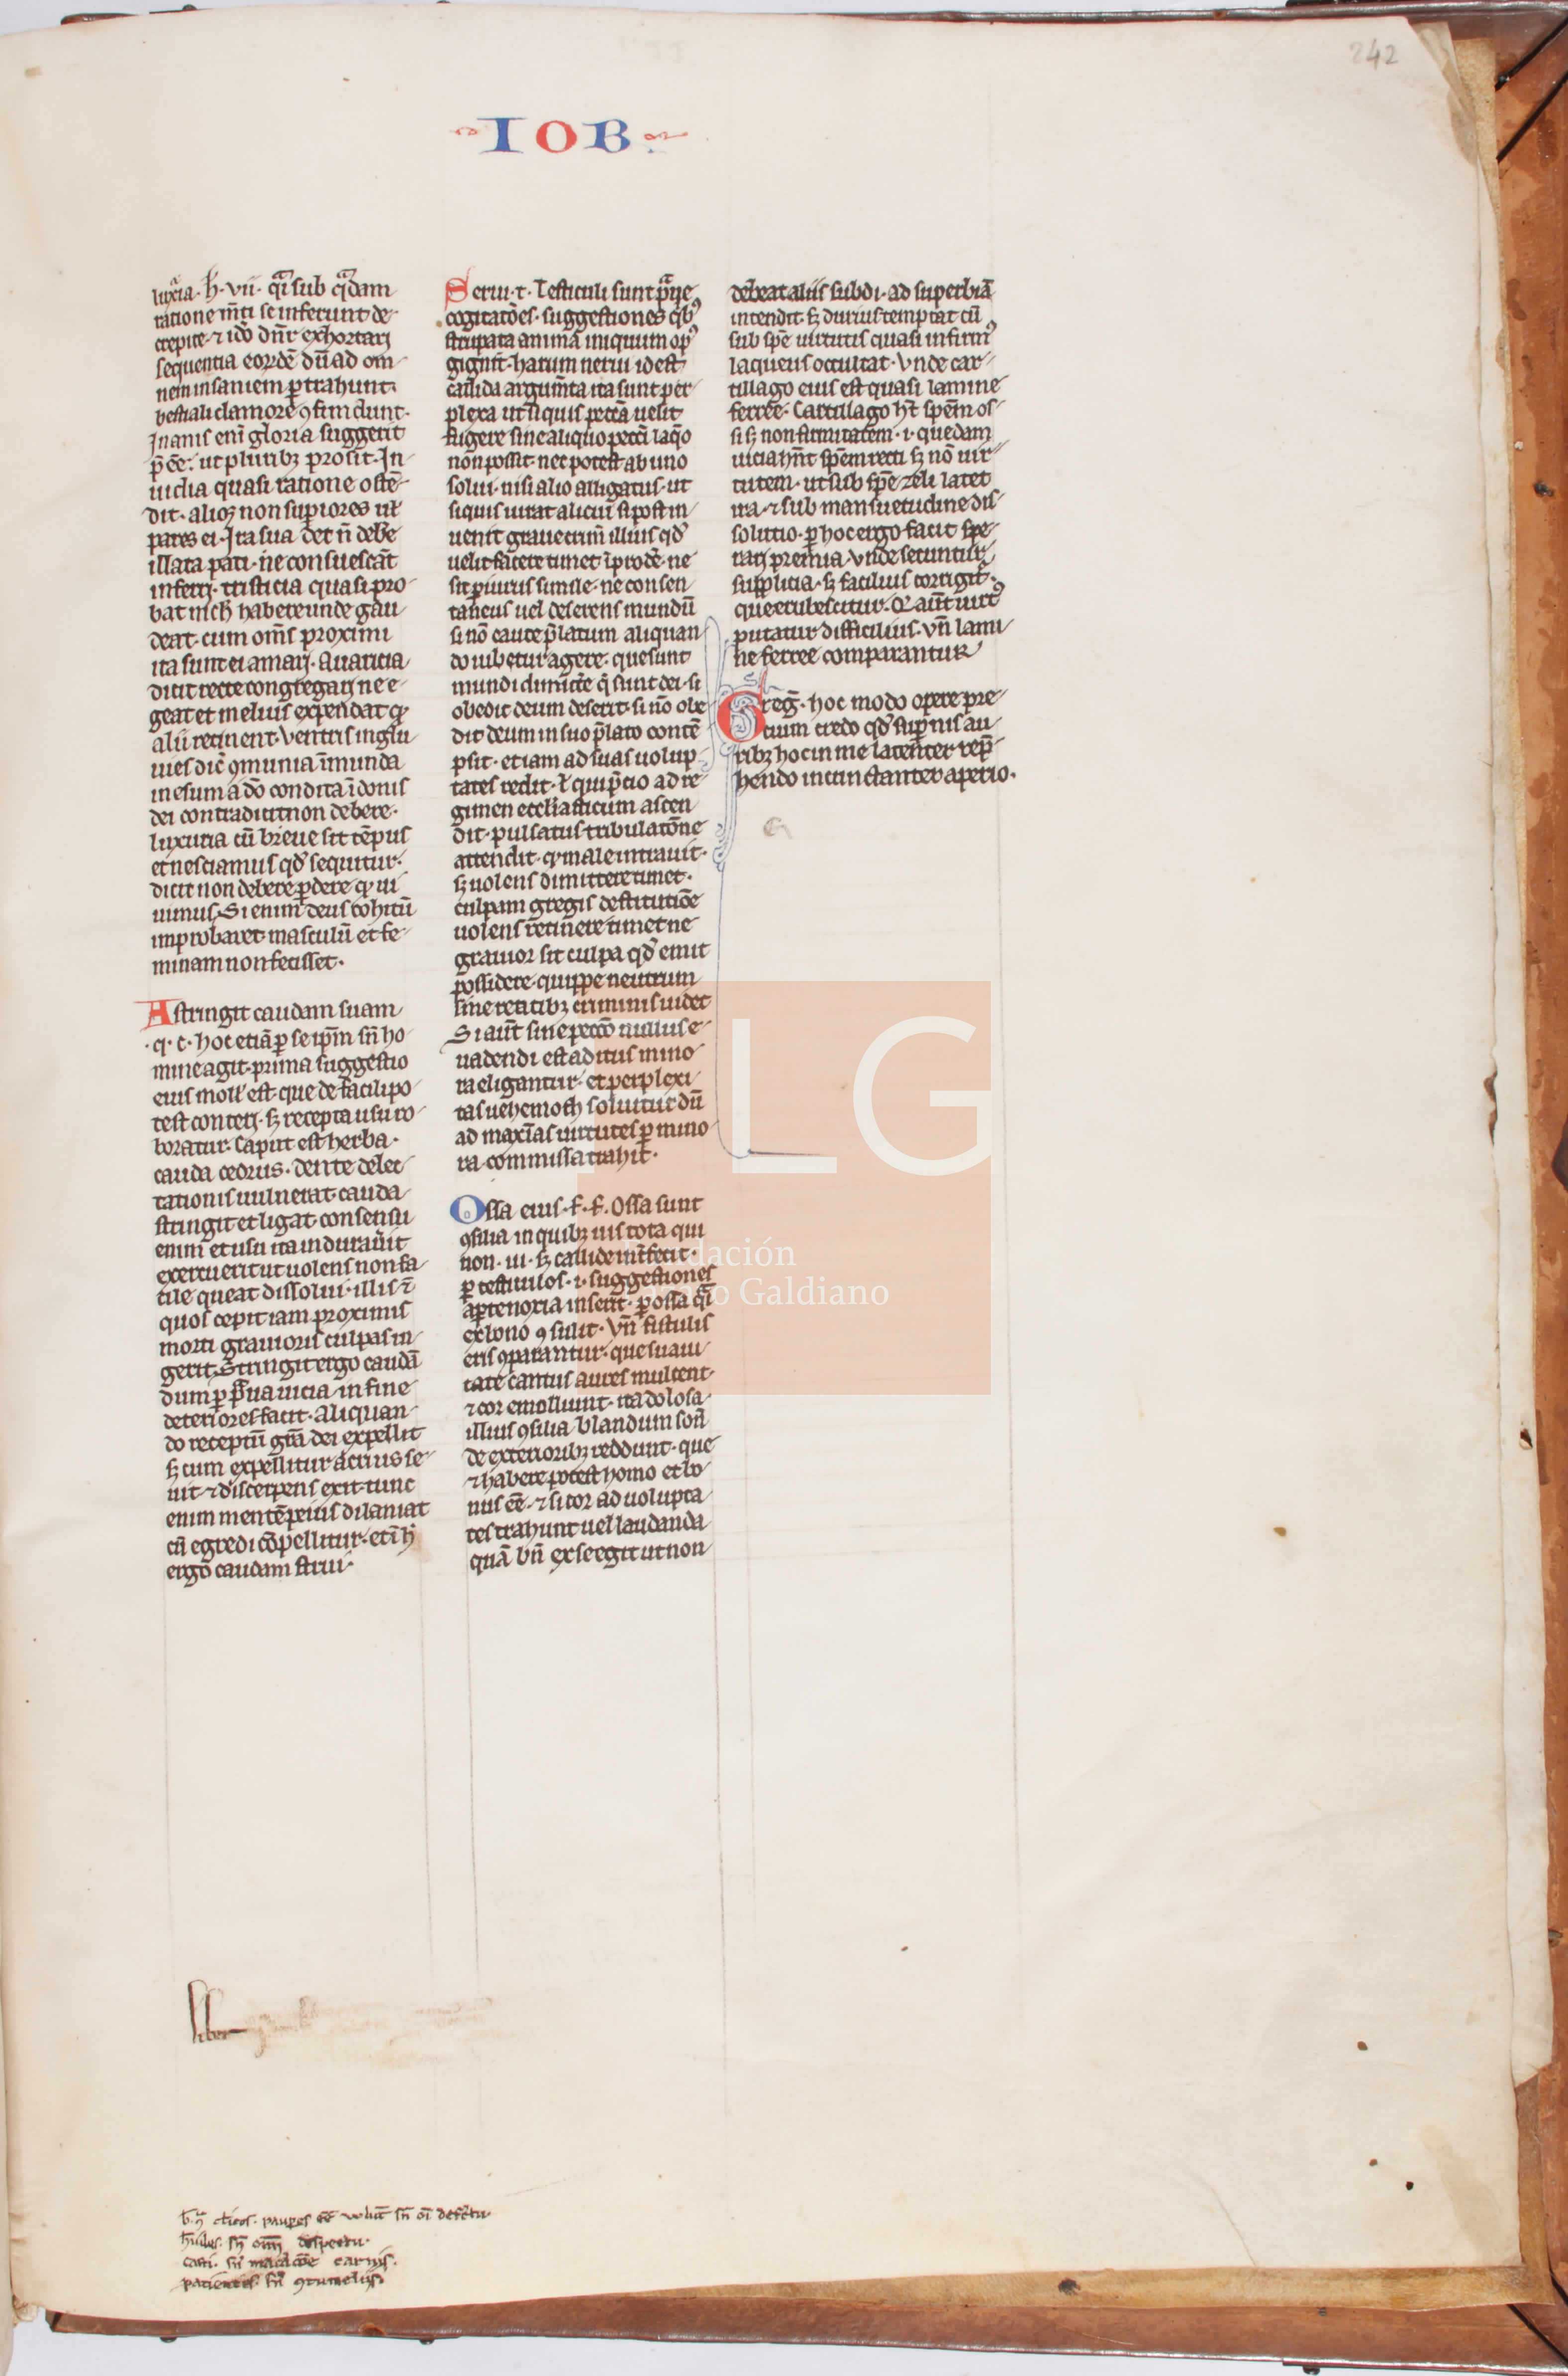 242
IOB
luxͣia. h̄. vii. qͣi sub qͣdam
ratione m̄ti se inferunt de
crepite. ⁊ iđo dn̄r exhortari
sequentia eordē dū ad om
nem insaniem ꝑtrahunt.
bestiali clamore ꝯfundunt.
Inanis eni gloria suggerit
p̄ ee. ut pluribꝫ prosit. In
uidia quasi ratione ostē
dit. alioꝫ non supiores ut
pares ei. Ira sua det n̄ debe
illata pati. ne consuescāt
inferri. tristicia quasi pro
bat mch̄ habere unde gau
deat. cum om̄s proximi
ita sunt ei amari. Auaricia
dicit recte congregari ne e
geat et melius expendat ꝙ
alii retinent. Ventris inglu
uies dic̄ ꝯmunia īmunda
in esum a dō condita ī donis
dei contradicit non debere.
luxuria cū breue sit tēpus
et nesciamus qđ sequitur.
dicit non debere ꝑdere ꝙ ui
uimus. Si enim deus cohitū
improbaret masculū et fe
minam non fecisset.
Astringit caudam suam
.q. c. hoc etiā ꝑ se ip̄m sn̄ ho
mine agit. prima suggestio
eius moll' est. que de facili po
test conteri. sꝫ recepta usu ro
boratur. Caput est herba.
cauda cedrus. dente delec
tationis uulnerat. cauda
stringit et ligat. consensu
enim et usu ita indurauit
exercuerit ut uolens non fa
cile queat dissolui. illis ⁊
quos cepit iam proximis
morti grauioris culpas in
gerit. Stringit ergo caudā
dum ꝑ p̄ua uicia in fine
deteriores facit. Aliquan
do receptū gr̄a dei expellit
sꝫ cum expellitur acrius se
uit ⁊ discerpens exit. tunc
enim mentē peius dilaniat
cū egredi cōpellitur. et ī h̄
ergo caudam strui.
Serui. t. Testiculi sunt p̄ue
cogitatōes. suggestiones qͥbꝰ
stuprata animā iniquum opꝰ
gignit. harum nerui id est
callida argum̄ta ita sunt per
plexa ut siquis peccā uelit
fugere sine aliquo pecci laq̄o
non possit. nec potest ab uno
solui. nisi alio alligatus. ut
siquis iurat alicui si post in
uenit graue crim̄ illius qđ
uelit facere timet ī prodē. ne
sit ꝑiurus simile. ne consen
taneus uel deserens mundū
si nō caute p̄latum aliquan
do iubetur agere. que sunt
mundi dum cc̄te q̄ sunt dei. si
obedit deum deserit. si nō obe
dit deum in suo p̄lato contē
psit. et iam ad suas uolup
tates redit. ł qui p̄cio ad re
gimen eccl̄iasticum ascen
dit. pulsatus tribulatōne
attendit. ꝙ male intrauit.
sꝫ uolens dimittere timet.
culpam gregis destitutiōe
uolens retinere timet ne
grauior sit culpa qđ emit
possidere. quippe neutrum
sine retitibꝫ criminis uidet
Si aūt sine pecco nullus e
uadendi est aditus mino
ra eligantur. et perplexi
tas uehemoth soluitur dū
ad maxīas uirtutes ꝑ mino
ra commissa trahit.
Ossa eius. f. f. Ossa sunt
ꝯsilia in quibꝫ uis tota qui
non. ui. sꝫ callide int̄fecit.
ꝑ testiculos. i. suggestiones
aꝑte noxia inserit. ꝑ ossa qͣi
ex bono ꝯsulit. Vn̄ fistulis
eris ꝯparantur. que suaui
tate cantus aures mulcent.
⁊ cor emolliunt. ita dolosa
illius ꝯsilia blandum son̄
de exterioribꝫ reddunt. que
⁊ habere potest homo et bo
nus eē. ⁊ si cor ad uolupta
tes trahunt uel laudanda
quā bn̄ ex se egit ut non
debeat aliis subdi. ad superbiā
intendit. sꝫ durius temptat cū
sub spē uirtutis quasi infirmꝰ
laqueus occultat. Vnde car
tillago eius est quasi lamine
ferree. Cartillago h̄t spēm os
sis sꝫ non firmitatem. i. quedam
uicia hn̄t spēm recti sꝫ nō uir
tutem. ut sub spē zeli latet
ira. ⁊ sub mansuetudine dis
solutio. ꝑ hoc ergo facit spe
rari premia. Vnde secuntur
supplicia. sꝫ facilius corrigit.
que erubescitur. Q aūt uirtꝰ
putatur difficilius. vn̄ lami
ne ferree comparantur.
Greg̅. hoc modo opere pre
cium credo qđ supnis au
ribꝫ hoc in me latenter rep̄
hendo incunctanter aperio.
FLG
Fundación
Lázaro Galdiano
liber
paupes eē uolūt sn̄ oī defectu.
hūiles. sn̄ om̄ despectu.
casti. sn̄ macācōe carnis.
patientes. sn̄ ꝯtumeliis.